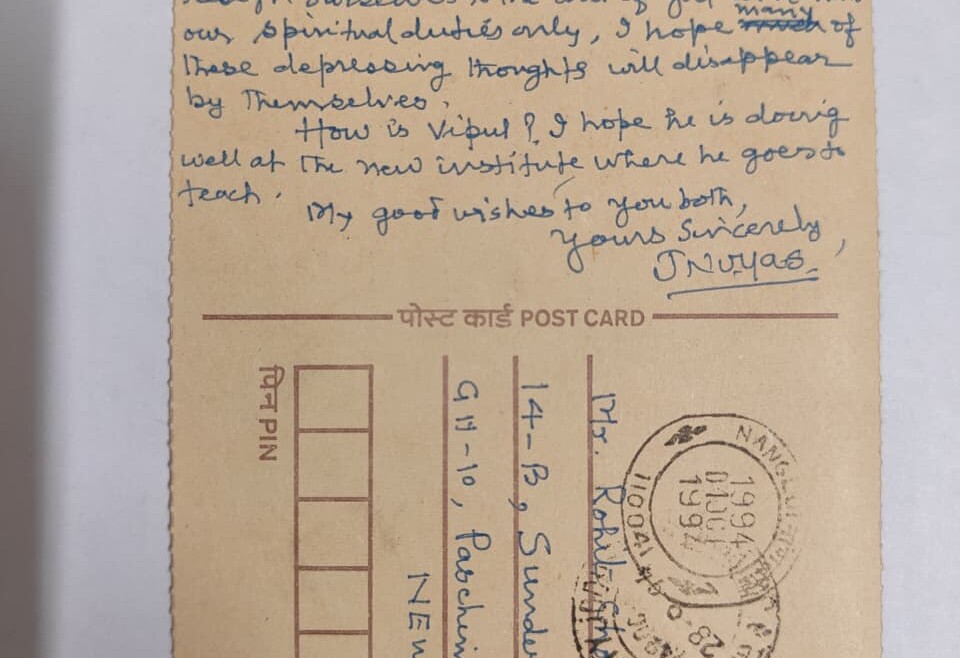 our spiritual duties only, I hope many of
these depressing thoughts will disappear
by themselves.
How is Vipul? I hope he is doing
well at the new institute where he goes to
teach.
My good wishes to you both,
Yours Sincerely,
JNVyas
पोस्ट कार्ड POST CARD
पिन PIN
Mr. Rohit
14-B, Sunder
GH-10, Paschim
NEW
110041
1994
01 OCT
1994